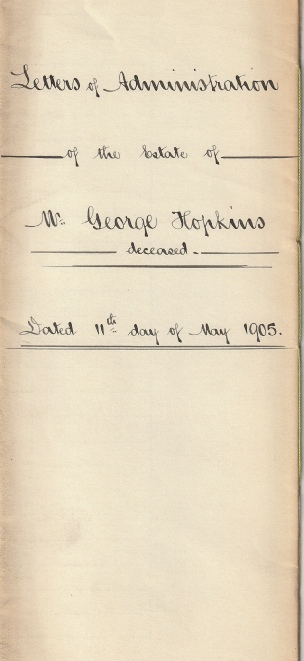 Letters of Administration
of the Estate of
Mr. George Hopkins
deceased.
Dated 11th day of May 1905.